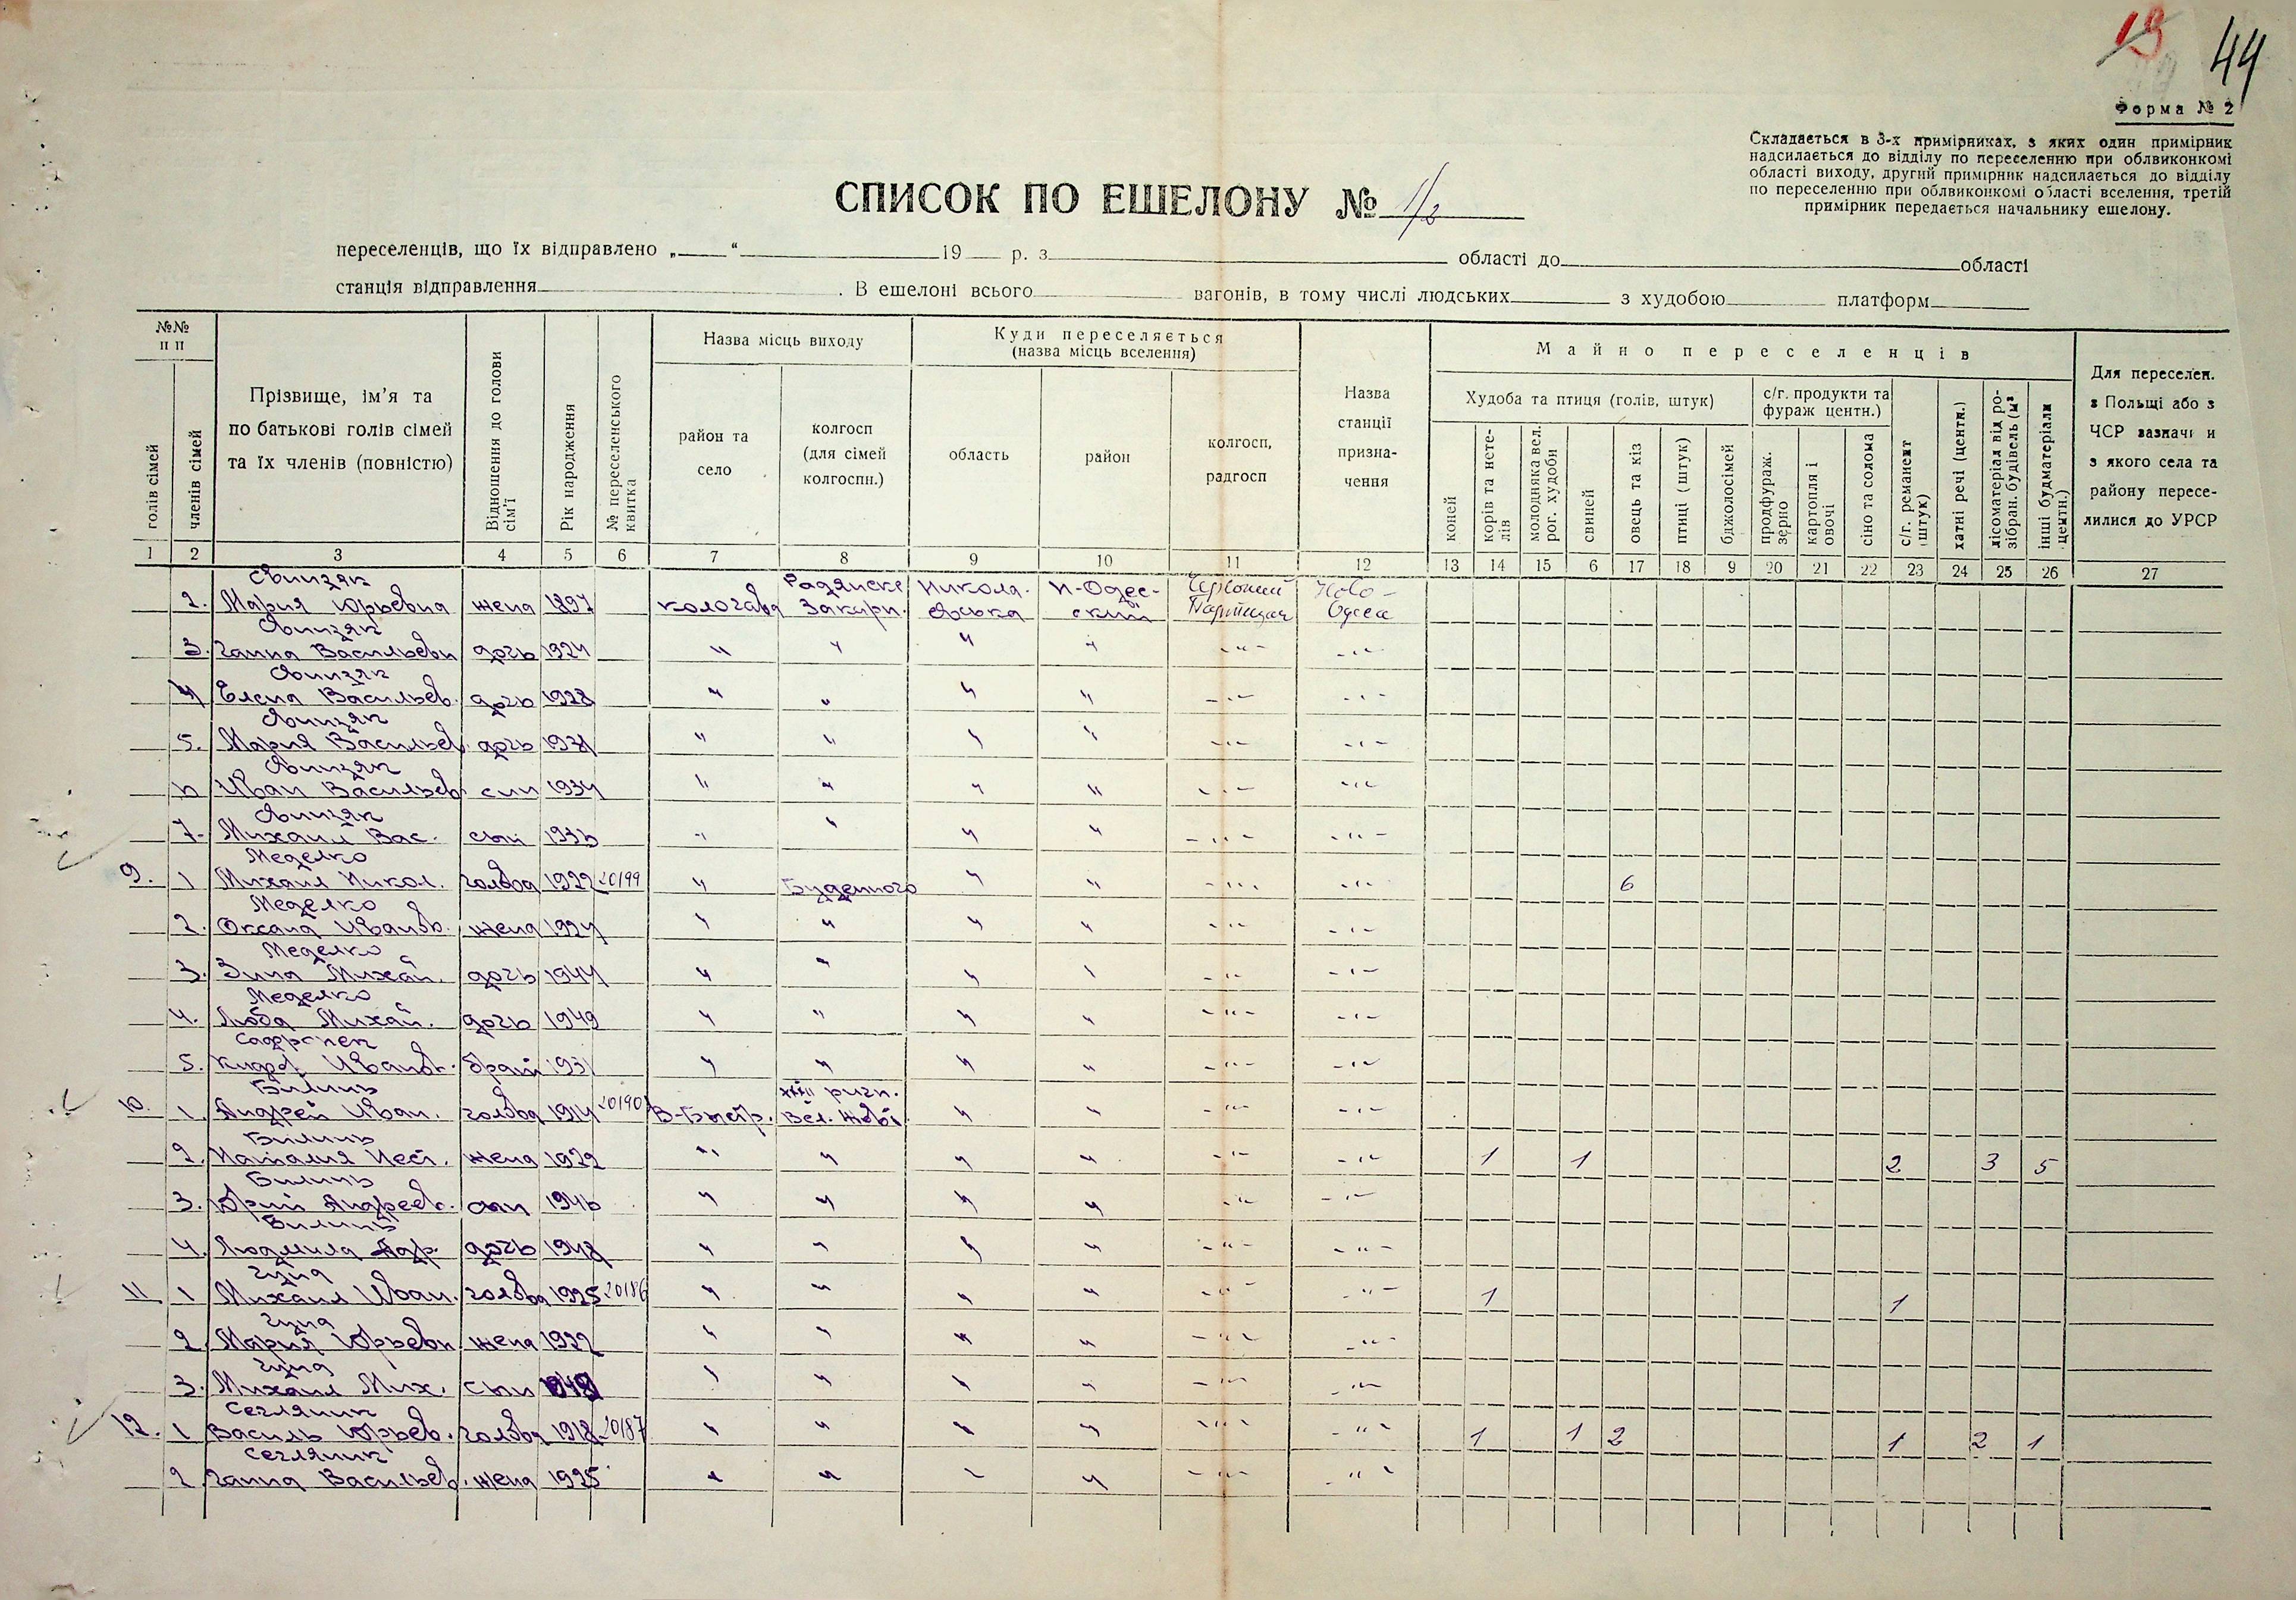 19
44
Форма № 2
Складається в 3-х примірниках, з яких один примірник
надсилається до відділу по переселенню при облвиконкомі
області виходу, другий примірник надсилається до відділу
по переселенню при облвиконкомі області вселення, третій
примірник передається начальнику ешелону.
СПИСОК ПО ЕШЕЛОНУ №
переселенців, що їх відправлено „ “ 19 р. з області до області
станція відправлення . В ешелоні всього вагонів, в тому числі людських з худобою платформ
№№ п п
голів сімей
членів сімей
Прізвище, ім’я та
по батькові голів сімей
та їх членів (повністю)
Відношення до голови сім’ї
Рік народження
№ переселенського квитка
Назва місць виходу
район та село
колгосп (для сімей колгоспн.)
Куди переселяється
(назва місць вселення)
область
район
колгосп, радгосп
Назва станції призна-чення
Майно переселенців
Худоба та птиця (голів, штук)
коней
корів та нете-лів
молодняка вел. рог. худоби
свиней
овець та кіз
птиці (штук)
бджолосімей
с/г. продукти та фураж центн.)
продфураж. зерно
картопля і овочі
сіно та солома
с/г. реманент (штук)
хатні речі (центн.)
лісоматеріал від ро-зібран. будівель (м³
інші будматеріали центн.)
Для переселен.
з Польщі або з
ЧСР зазначи и
з якого села та
району пересе-
лилися до УРСР
1 2 3 4 5 6 7 8 9 10 11 12 13 14 15 6 17 18 9 20 21 22 23 24 25 26 27
2. Мария Юрьевна жена 1897 Колочава Радянске Закарп. Никола-евська Н-Одес-ский Червоний Партизан Ново-Одеса
3. Ганна Васильевн дочь 1924 " " " " -"- -"-
4 Елена Васильев. дочь 1928 " " " " -"- -"-
5. Мария Васильев. дочь 1931 " " " " -"- -"-
6 Иван Васильев син 1934 " " " " -"- -"-
7. Михаил Вас. сын 1936 " " " " -"- -"-
Меделко
9. 1 Михаил Никол. голова 1922 20199 " Буденного " " -"- -"- 6
Меделко
2. Оксана Иванов. жена 1924 " " " " -"- -"-
Меделко
3. Зина Михай. дочь 1944 " " " " -"- -"-
Меделко
4. Люба Михай. дочь 1949 " " " " -"- -"-
5. Иванов. брат 1931 " " " " -"- -"-
Билинь
10. 1. Андрей Иван. голова 1914 20190 В-Быстр. річн. Вел. Жовт. " " -"- -"-
Билинь
2. Наталия Нест. жена 1922 " " " " -"- -"- 1 1 2 3 5
Билинь
3. Юрий Андреев. син 1946 " " " " -"- -"-
Билинь
4. Людмила дочь 1948 " " " " -"- -"-
11 1 Михаил Иван. голова 1925 20186 " " " " -"- -"- 1 1
2 Мария Юрьевн. жена 1922 " " " " -"- -"-
3. Михаил Мих. сын 1949 " " " " -"- -"-
Сегляник
12. 1 Василь Юрьев. голова 1918 20187 " " " " -"- -"- 1 1 2 1 2 1
Сегляник
2 Ганна Васильев. жена 1925 " " " " -"- -"-